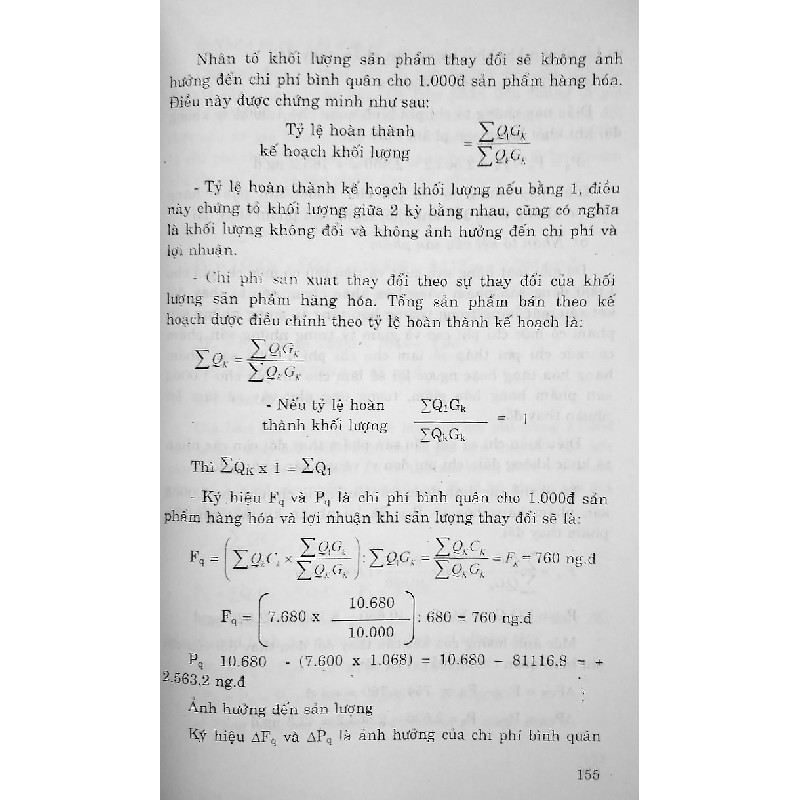 Nhân tố khối lượng sản phẩm thay đổi sẽ không ảnh
hưởng đến chi phí bình quân cho 1.000đ sản phẩm hàng hóa.
Điều này được chứng minh như sau:
Tỷ lệ hoàn thành kế hoạch khối lượng = ∑Q₁Gₖ / ∑QₖGₖ
- Tỷ lệ hoàn thành kế hoạch khối lượng nếu bằng 1, điều
này chứng tỏ khối lượng giữa 2 kỳ bằng nhau, cũng có nghĩa
là khối lượng không đổi và không ảnh hưởng đến chi phí và
lợi nhuận.
- Chi phí sản xuất thay đổi theo sự thay đổi của khối
lượng sản phẩm hàng hóa. Tổng sản phẩm bán theo kế
hoạch được điều chỉnh theo tỷ lệ hoàn thành kế hoạch là:
∑Qₖ = ∑Q₁Gₖ / ∑QₖGₖ
- Nếu tỷ lệ hoàn thành khối lượng ∑Q₁Gₖ / ∑QₖGₖ = 1
Thì ∑Qₖ x 1 = ∑Q₁
- Ký hiệu F_q và P_q là chi phí bình quân cho 1.000đ sản
phẩm hàng hóa và lợi nhuận khi sản lượng thay đổi sẽ là:
F_q = (∑QₖCₖ × ∑Q₁Gₖ / ∑QₖGₖ) : ∑Q₁Gₖ = ∑QₖCₖ / ∑QₖGₖ = Fₖ = 760 ng.đ
F_q = (7.680 x 10.680 / 10.000) : 680 = 760 ng.đ
P_q 10.680 - (7.600 x 1.068) = 10.680 - 81116.8 = +
2.563,2 ng.đ
Ảnh hưởng đến sản lượng
Ký hiệu ΔF_q và ΔP_q là ảnh hưởng của chi phí bình quân
155